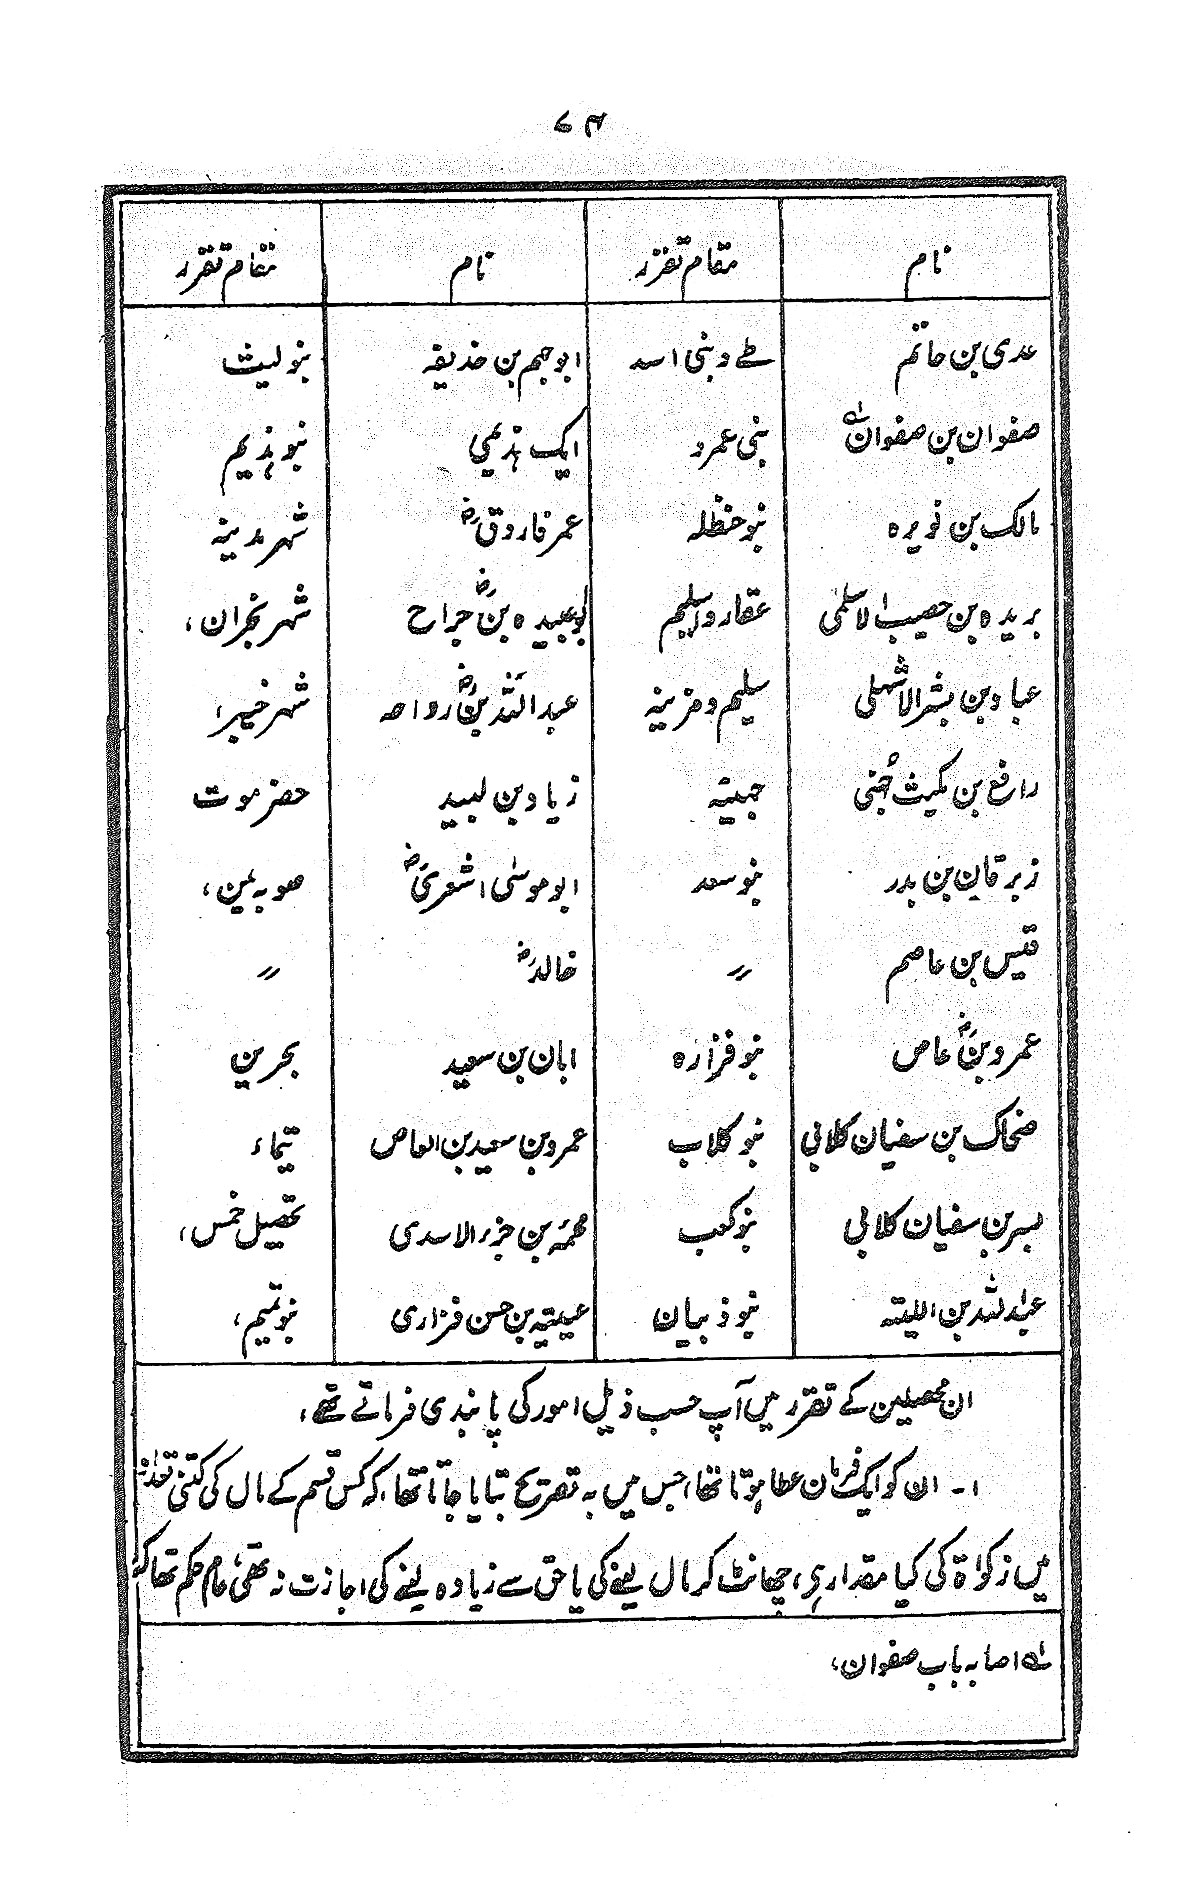 ۷۴
نام مقام تقرر نام مقام تقرر
عدی بن حاتم طے و بنی اسد ابو جہم بن حذیفہ بنو لیث
صفوان بن صفوان لہ بنی عمرو ایک ہذیمی بنو ہذیم
مالک بن نویرہ بنو حنظلہ عمر فاروقؓ شہر مدینہ
بریدہ بن حصیب الاسلمی غفار و اسلم ابو عبیدہ بنؓ جراح شہر نجران،
عباد بن بشر الاشہلی سلیم و مزینہ عبد اللہ بنؓ رواحہ شہر خیبر،
رافع بن مکیث جہنی جہینہ زیاد بن لبید حضر موت
زبرقان بن بدر بنو سعد ابو موسیٰ اشعریؓ صوبہ یمن،
قیس بن عاصم 〃 خالدؓ 〃
عمرو بنؓ عاص بنو فزارہ ابان بن سعید بحرین
ضحاک بن سفیان کلابی بنو کلاب عمرو بن سعید بن العاص تیماء
بسر بن سفیان کلابی بنو کعب محمیہ بن جزء الاسدی تحصیل خمس،
عبد اللہ بن اللیتہ بنو ذبیان عیینہ بن حسن فزاری بنو تمیم،
ان محصلین کے تقرر میں آپ حسب ذیل امور کی پابندی فرماتے تھے،
۱۔ ان کو ایک فرمان عطا ہوتا تھا، جس میں بہ تصریح بتایا جاتا تھا، کہ کس قسم کے مال کی کتنی تعداد
میں زکواۃ کی کیا مقدار ہی، چھانٹ کر مال لینے کی یا حق سے زیادہ لینے کی اجازت نہ تھی، عام حکم تھا کہ
لہ اصابہ باب صفوان،